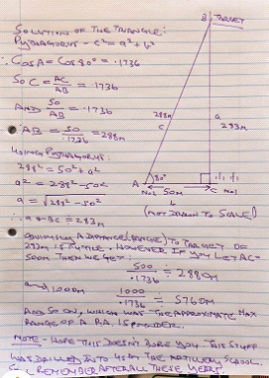 SOLUTION OF THE TRIANGLE:
PYTHAGORUS - c² = a² + b²
∴ Cos A = Cos 80° = .1736
SO C = AC/AB = .1736
AND 50/AB = .1736
∴ AB = 50/.1736 = 288m
USING PYTHAGORUS:
288² = 50² + a²
a² = 288² - 50²
a = √288² - 50²
= 283m
B TARGET
288m
c
a
283m
A
80°
No2 50m
C No1
(NOT DRAWN TO SCALE)
(RANGE) TO TARGET OF
283m IS FUTILE. HOWEVER IF YOU LET AC =
500m THEN WE GET:
500/.1736 = 2880m
1000m 1000/.1736 = 5760m
AND SO ON, WHICH WAS THE APPROXIMATE MAX
RANGE OF A R.A. 18 POUNDER.
NOTE - HOPE THIS DOESN'T BORE YOU, THIS STUFF
WAS DRILLED INTO US BY THE ARTILLERY SCHOOL
REMEMBER AFTER ALL THESE YEARS